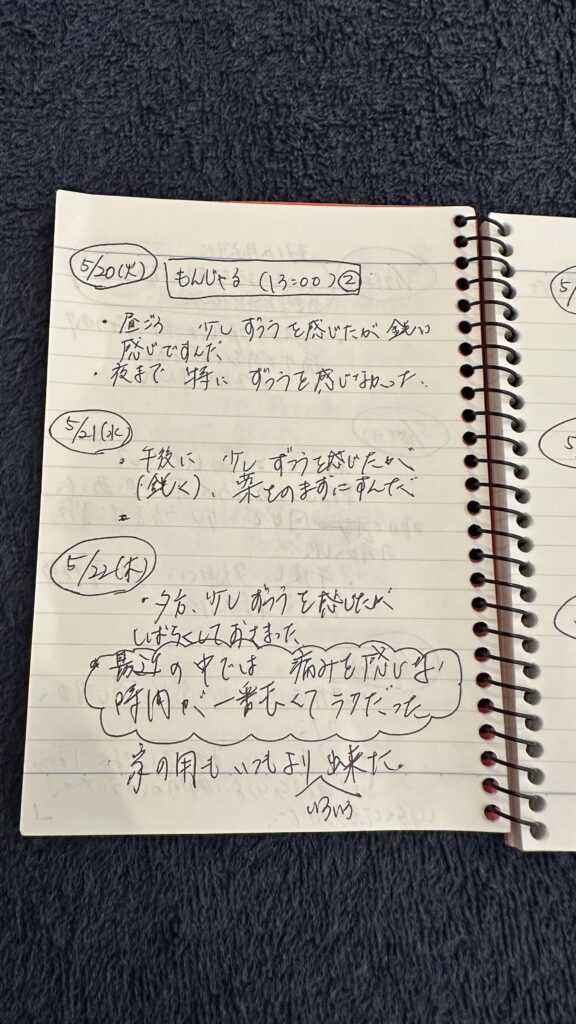 5/20(火) もんじゃる (13:00) ②
・昼ごろ 少しずつうを感じたが鋭い
感じですんだ
・夜まで 特に ずつうを感じなかった.
5/21(水)
・午後に 少しずつうを感じたが
(鋭く)、薬をのまずにすんだ
5/22(木)
・夕方、少しずつうを感じたが
しばらくしておさまった
・最近の中では 痛みを感じない
時間が 一番長くてラクだった
家の用も いつもより 出来た.
いろいろ